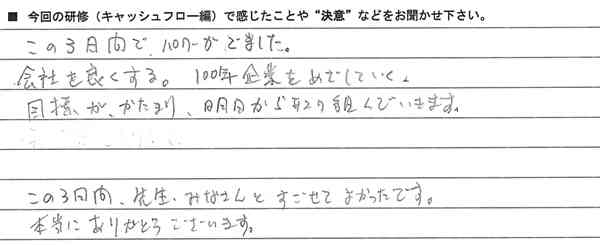 ■ 今回の研修（キャッシュフロー編）で感じたことや“決意”などをお聞かせ下さい。
この3日間で、パワーがでました。
会社を良くする。100年企業をめざしていく、
目標が、かたまり、明日から取り組んでいきます。
この3日間、先生、みなさんとすごせてよかったです。
本当にありがとうございます。